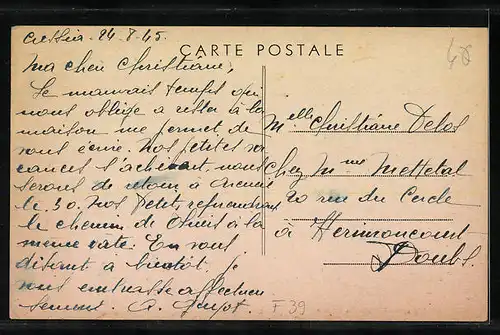 24-8-45.
CARTE POSTALE
48
Ma chère Christiane,
Le mauvais temps qui
nous oblige à rester à la
maison me permet, de
vous écrire. Nos petites va
cances s'achèvent, nous
serons de retour à
le 30. Nos Petits, reprendront
le chemin de à la
même date. En vous
disant à bientôt. je
vous embrasse affectueu
sement
Melle Christiane Delos
Chez Mme Mettetal
20 rue du Cercle
à Hérimoncourt
Doubs
F 39